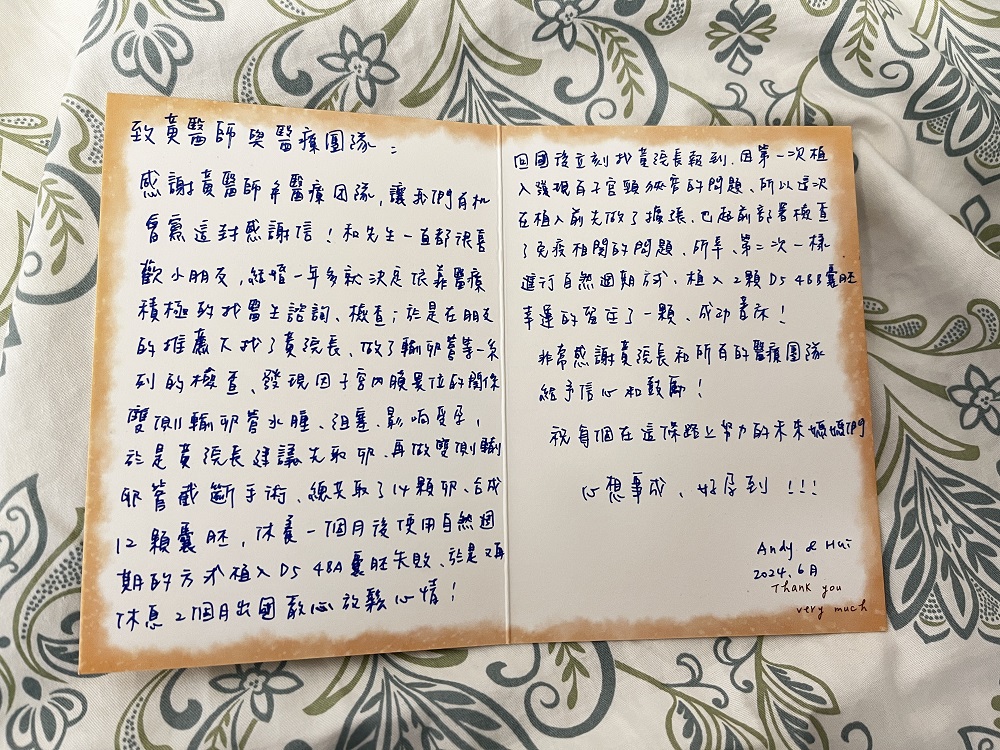 致黃醫師與醫療團隊：
感謝黃醫師与醫療団隊，讓我們有机
會寫這封感謝信！和先生一直都很喜
歡小朋友，結婚一年多就決定依靠醫療
積極的找醫生諮詢、檢查；於是在朋友
的推薦下找了黃院長、做了輸卵管等一系
列的檢查、發現因子宮內膜異位的關係
雙側輸卵管水腫、阻塞、影响受孕，
於是黃院長建議先取卵、再做雙側輸
卵管截斷手術、總共取了14顆卵、合成
12顆囊胚，休養一個月後使用自然週
期的方式植入D5 4BA囊胚失敗、於是又再
休息2個月出國散心放鬆心情！
回國後立刻找黃院長報到、因第一次植
入發現有子宮頸狹窄的問題、所以這次
在植入前先做了擴張、也超前部署檢查
了免疫相関的問題、所幸、第二次一樣
進行自然週期方式、植入2顆D5 4BB囊胚
幸運的留住了一顆、成功着床！
非常感謝黃院長和所有的醫療團隊
給予信心和鼓勵！
祝每個在這條路上努力的未來媽媽們
心想事成、好孕到！！！
Andy & Hui
2024.6月
Thank you
very much